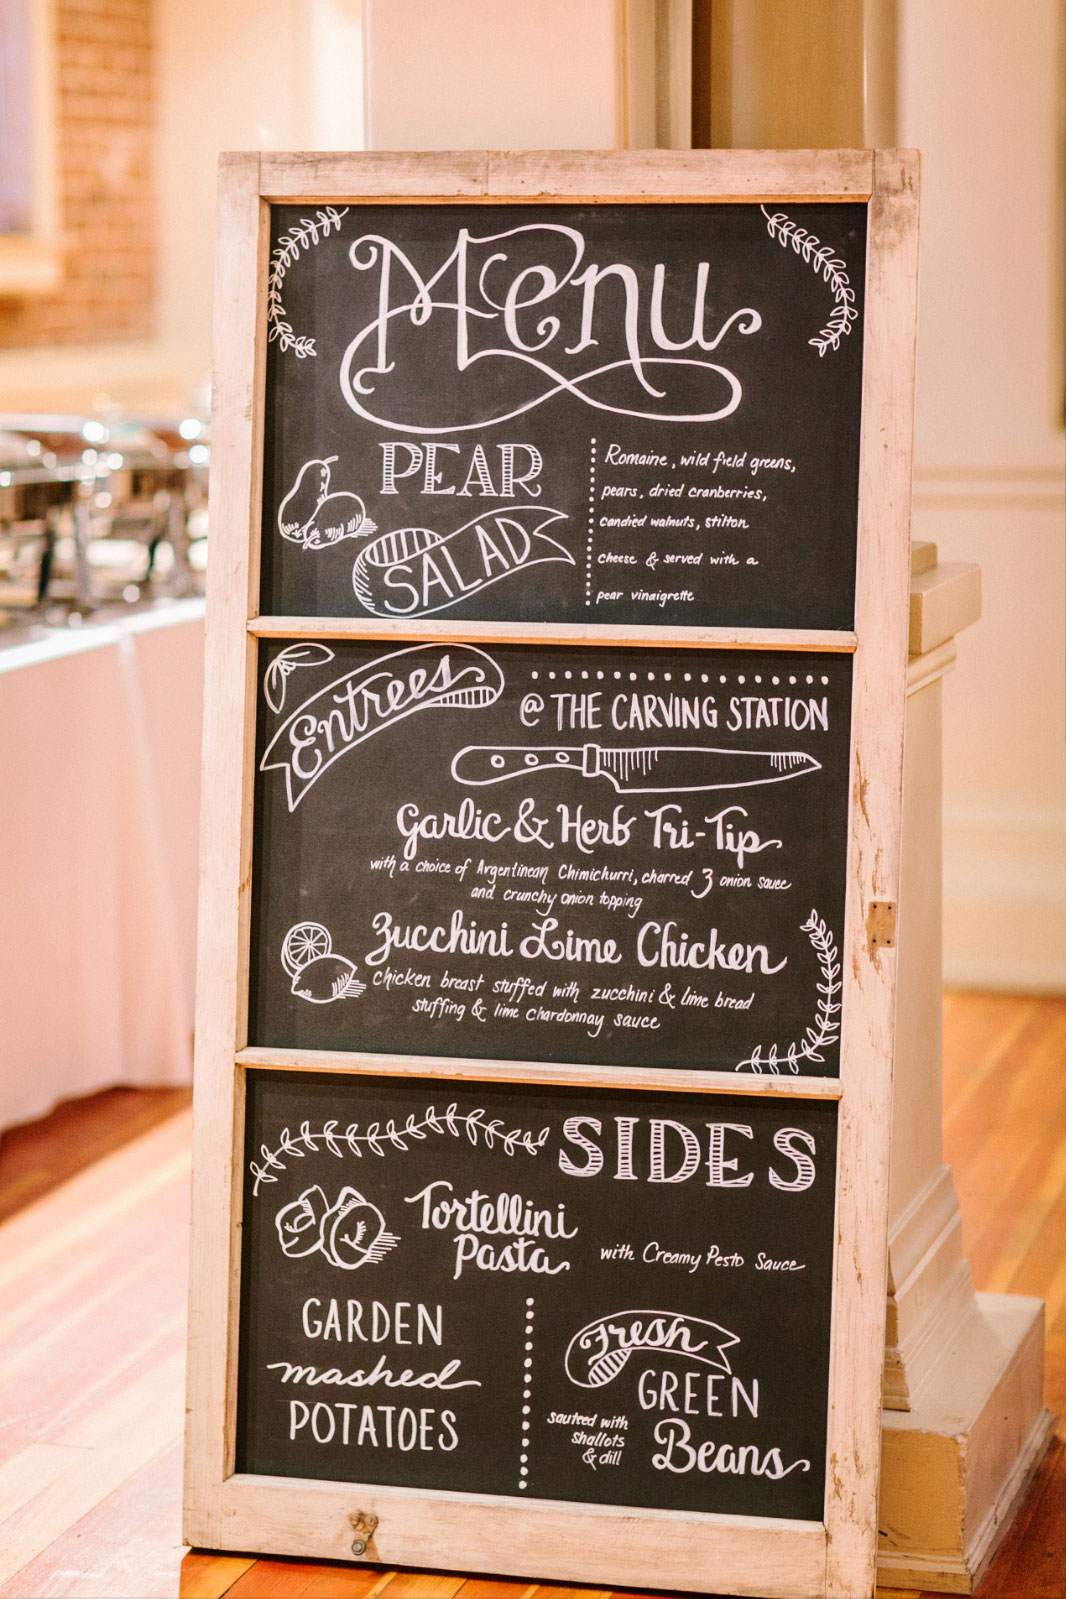 Menu
PEAR
SALAD
Romaine, wild field greens,
pears, dried cranberries,
candied walnuts, stilton
cheese & served with a
pear vinaigrette
Entrees
@ THE CARVING STATION
Garlic & Herb Tri-Tip
with a choice of Argentinean Chimichurri, charred 3 onion sauce
and crunchy onion topping
Zucchini Lime Chicken
chicken breast stuffed with zucchini & lime bread
stuffing & lime chardonnay sauce
SIDES
Tortellini
Pasta
with Creamy Pesto Sauce
GARDEN
mashed
POTATOES
Fresh
GREEN
Beans
sauteed with
shallots
& dill